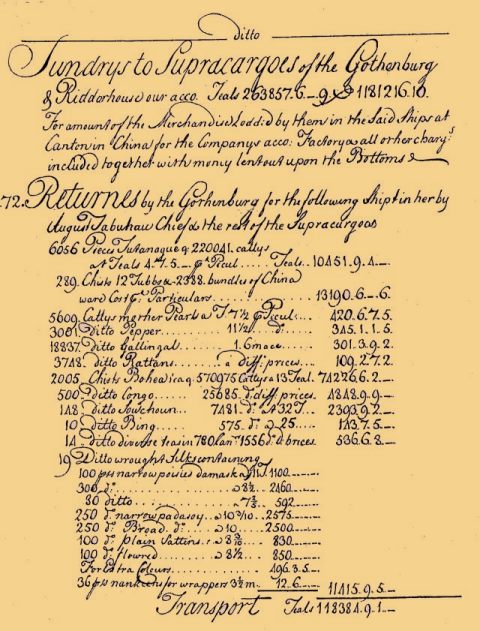 ditto
Sundrys to Supracargoes of the Gothenburg
& Ridderhouse our acco. Teals 263857.6._9 1181216.10.
For amount of the Merchandise Lodd.d by them in the Said Ships at
Canton in China for the Companys acco: Factory & all other charg.s
included together with money lent out upon the Bottoms
72. Returnes by the Gothenburg for the following Shipt in her by
August Tabuhaw Chief & the rest of the Supracargoes
6056 Pieces Tutanaque q 220041. cattys
at Teals 4.7.5._ p Picul ...... Teals.. 10451.9.4._
289. Chists 12 Tubbs & 2388. bundles of China
ware Cost p. Particulars ............ 13190.6._6.
5609. Cattys mother Pearls a T. 7½ p Picul: ... 420.6.7.5.
3001. Ditto Pepper ...... 11½ .. d:o ...... 345.1.1.5.
18837. Ditto Gallingal ...... 1.6 mace ...... 301.3.9.2.
3748. ditto Rattans ...... a diff: prices ...... 109.2.7.2.
2005. Chists Bohea qq. 570975 Cattys a 13 Teal. 74226.6.2._
500. Ditto Congo .... 25685. d:o diff. prices. 4848.9.9._
148. ditto Souchoun... 7481. d:o a 32 T... 2393.9.2._
10. Ditto Bing ...... 575. d:o a 25. ..... 143.7.5._
14. Ditto diverse teas in 780 Can.rs 1556 d:o d:o prices. 536.6.8._
19. Ditto wrought Silks containing
100 p.ss narrow poisies damask a 11 T. 1100.__
300. d:o .......... a 8 2460.__
80 ditto .......... a 7 592__
250 d:o narrow padasoy .. a 10 3/10... 2575__
250 d:o Broad. d:o .... a 10 .... 2500__
100 d:o plain Sattins .. a 8 3/10 ... 830__
100 d:o flowred .... a 8½ .... 850__
For Extra Colours ........ 496.3.5.__
36 p.ss nankeens for wrappers 3½ m. 12.6.__ 11415.9.5._
Transport Teals 118384.9.1._